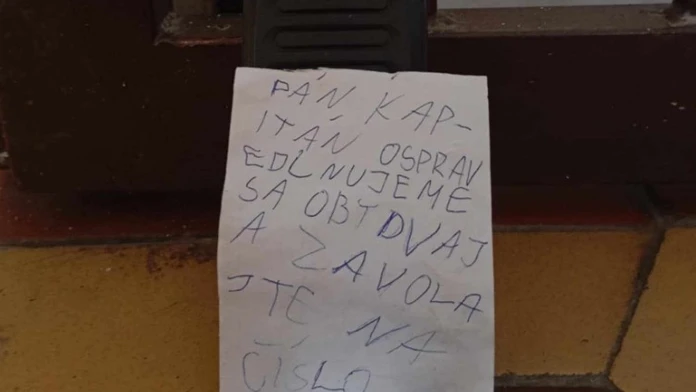 PÁN KAP-
ITÁN OSPRAV
EDLNUJEME
SA OBYDVAJ
A ZAVOLA
JTE NA
ČÍSLO